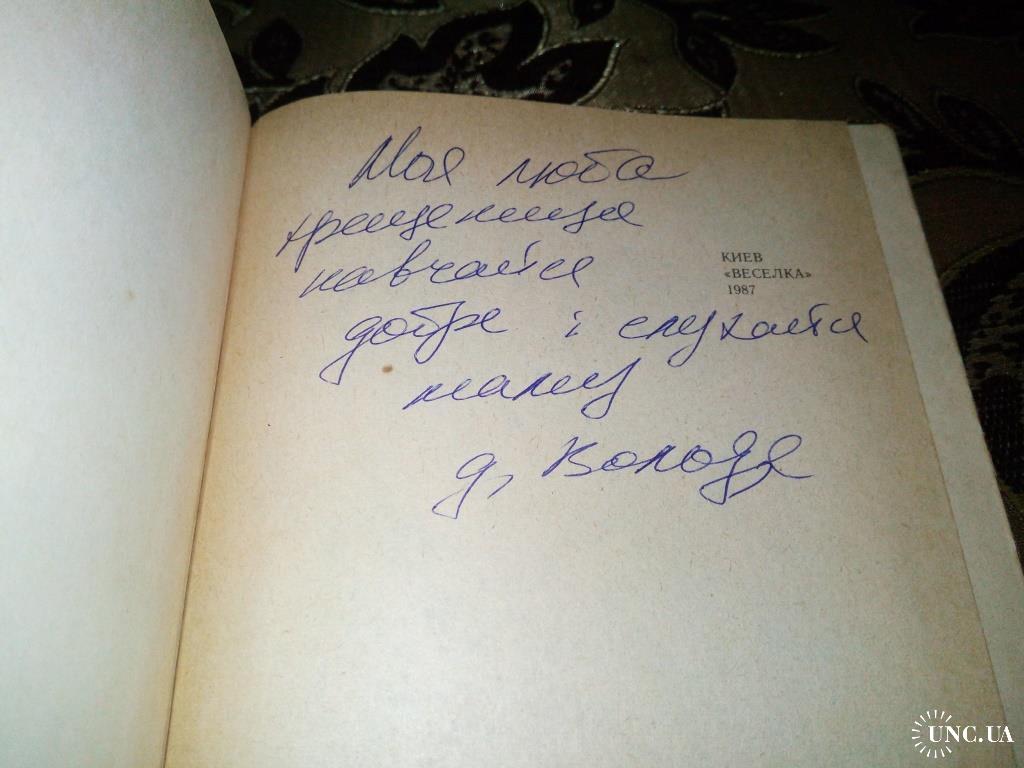 Моя люба
хрещениця
навчайся
добре і слухайся
маму
д. Володя
КИЕВ
«ВЕСЕЛКА»
1987
UNC.UA